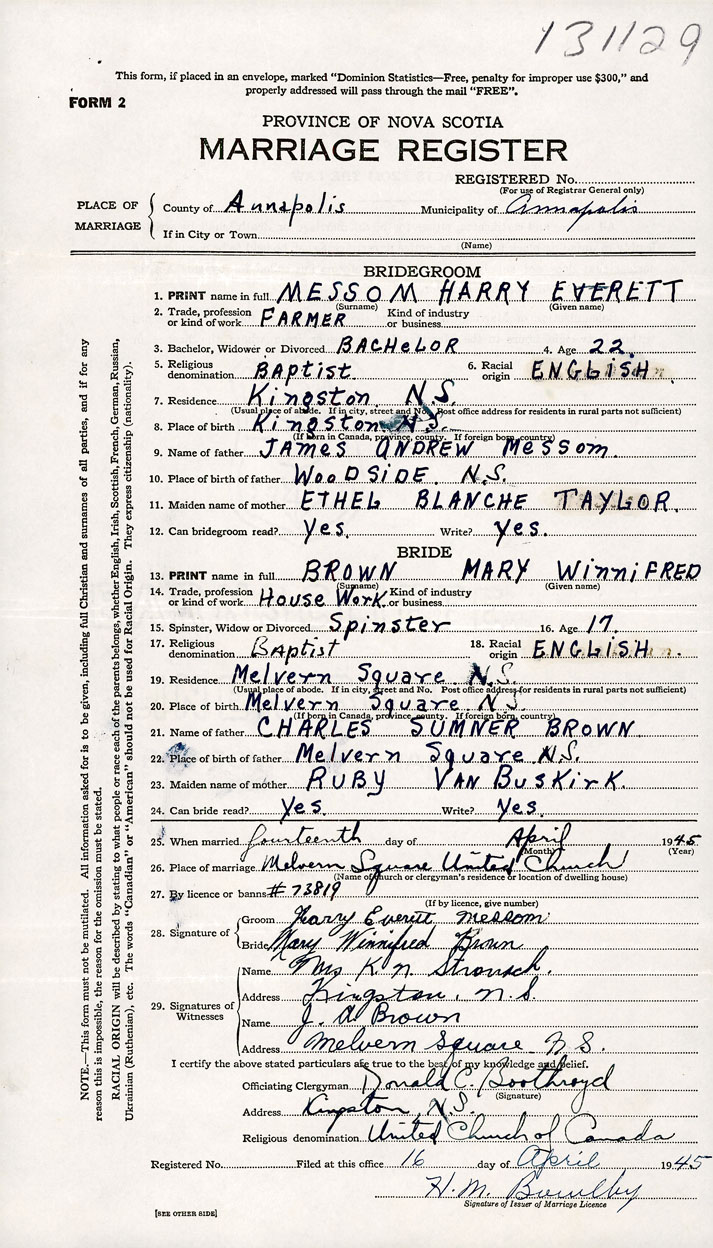 131129
This form, if placed in an envelope, marked “Dominion Statistics—Free, penalty for improper use $300,” and
properly addressed will pass through the mail “FREE”.
FORM 2
PROVINCE OF NOVA SCOTIA
MARRIAGE REGISTER
REGISTERED No.
(For use of Registrar General only)
PLACE OF MARRIAGE
County of Annapolis Municipality of Annapolis
If in City or Town
(Name)
BRIDEGROOM
1. PRINT name in full MESSOM HARRY EVERETT
(Surname) (Given name)
2. Trade, profession or kind of work FARMER Kind of industry or business
3. Bachelor, Widower or Divorced BACHELOR 4. Age 22.
5. Religious denomination BAPTIST 6. Racial origin ENGLISH
7. Residence Kingston N.S.
(Usual place of abode. If in city, street and No. Post office address for residents in rural parts not sufficient)
8. Place of birth Kingston N.S.
(If born in Canada, province, county. If foreign born, country)
9. Name of father JAMES ANDREW MESSOM
10. Place of birth of father WOODSIDE N.S.
11. Maiden name of mother ETHEL BLANCHE TAYLOR.
12. Can bridegroom read? Yes. Write? Yes.
BRIDE
13. PRINT name in full BROWN MARY WINNIFRED
(Surname) (Given name)
14. Trade, profession or kind of work House Work Kind of industry or business
15. Spinster, Widow or Divorced Spinster 16. Age 17
17. Religious denomination Baptist 18. Racial origin ENGLISH.
19. Residence Melvern Square N.S.
(Usual place of abode. If in city, street and No. Post office address for residents in rural parts not sufficient)
20. Place of birth Melvern Square N.S.
(If born in Canada, province, county. If foreign born, country)
21. Name of father CHARLES SUMNER BROWN
22. Place of birth of father Melvern Square N.S.
23. Maiden name of mother RUBY VAN BUSKIRK.
24. Can bride read? Yes. Write? Yes.
25. When married fourteenth day of April 1945
(Month) (Year)
26. Place of marriage Melvern Square United Church
(Name of church or clergyman's residence or location of dwelling house)
27. By licence or banns # 73819
(If by licence, give number)
28. Signature of
Groom Harry Everett Messom
Bride Mary Winnifred Brown
29. Signatures of Witnesses
Name Mrs K. N.
Address Kingston, N.S.
Name J. A Brown
Address Melvern Square N.S.
I certify the above stated particulars are true to the best of my knowledge and belief.
Officiating Clergyman Donald C. Boothroyd
(Signature)
Address Kingston, N.S.
Religious denomination United Church of Canada
Registered No. Filed at this office 16 day of April 1945
H. M. Bowlby
Signature of Issuer of Marriage Licence
[SEE OTHER SIDE]
NOTE.—This form must not be mutilated. All information asked for is to be given, including full Christian and surnames of all parties, and if for any
reason this is impossible, the reason for the omission must be stated.
RACIAL ORIGIN will be described by stating to what people or race each of the parents belongs, whether English, Irish, Scottish, French, German, Russian,
Ukrainian (Ruthenian), etc. The words “Canadian” or “American” should not be used for Racial Origin. They express citizenship (nationality).